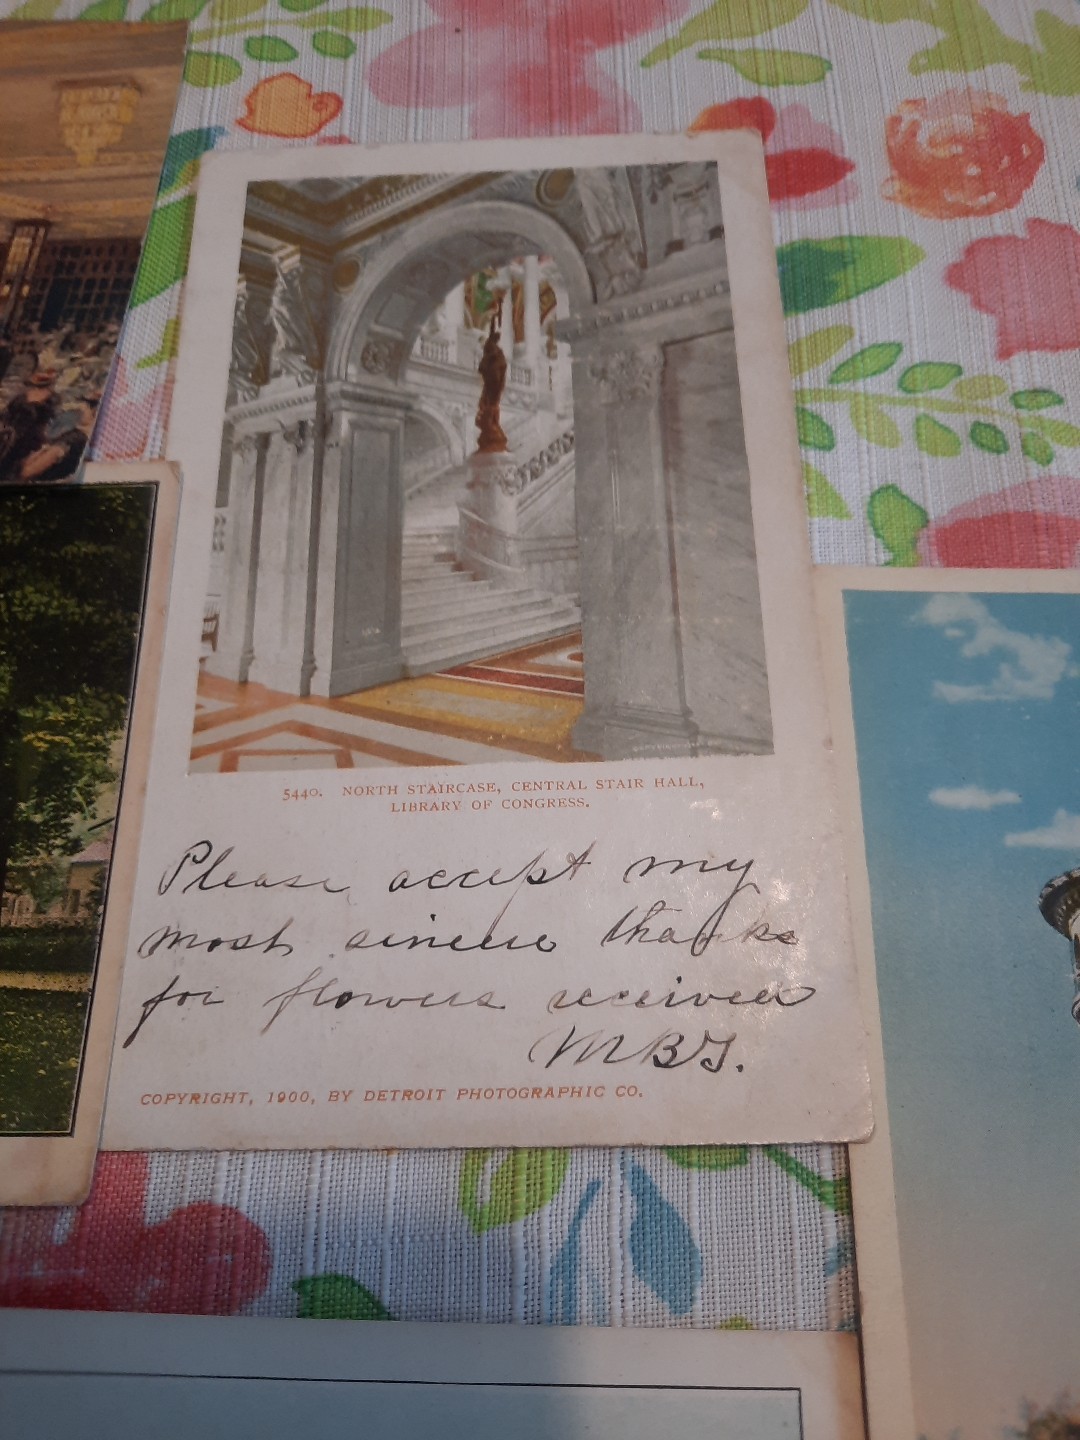 5440. NORTH STAIRCASE, CENTRAL STAIR HALL,
LIBRARY OF CONGRESS.
Please accept my
most sincere thanks
for flowers received
MBG.
COPYRIGHT, 1900, BY DETROIT PHOTOGRAPHIC CO.